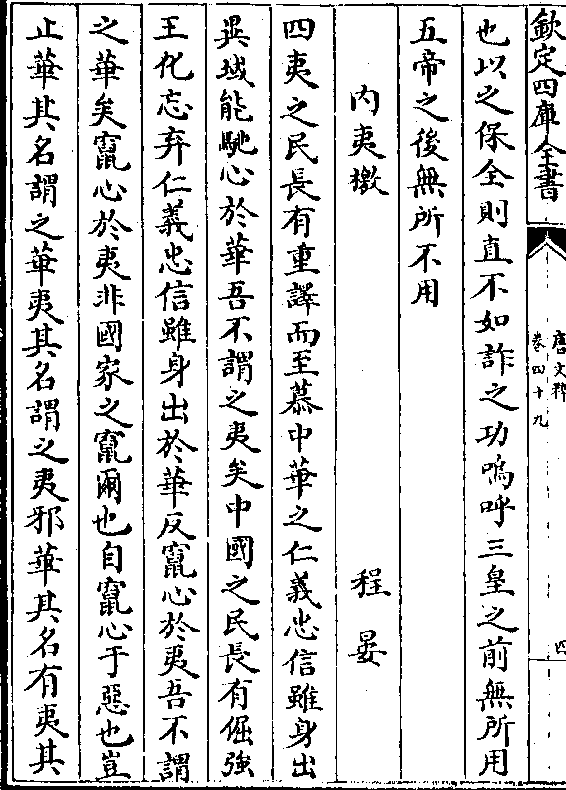 欽定四庫全書
唐文粹
卷四十九
四
也以之保全則直不如詐之功嗚呼三皇之前無所用
五帝之後無所不用
内夷檄
程晏
四夷之民長有重譯而至慕中華之仁義忠信雖身出
異域能馳心於華吾不謂之夷矣中國之民長有倔強
王化忘弃仁義忠信雖身出於華反竄心於夷吾不謂
之華矣竄心於夷非國家之竄爾也自竄心于惡也豈
止華其名謂之華夷其名謂之夷邪華其名有夷其